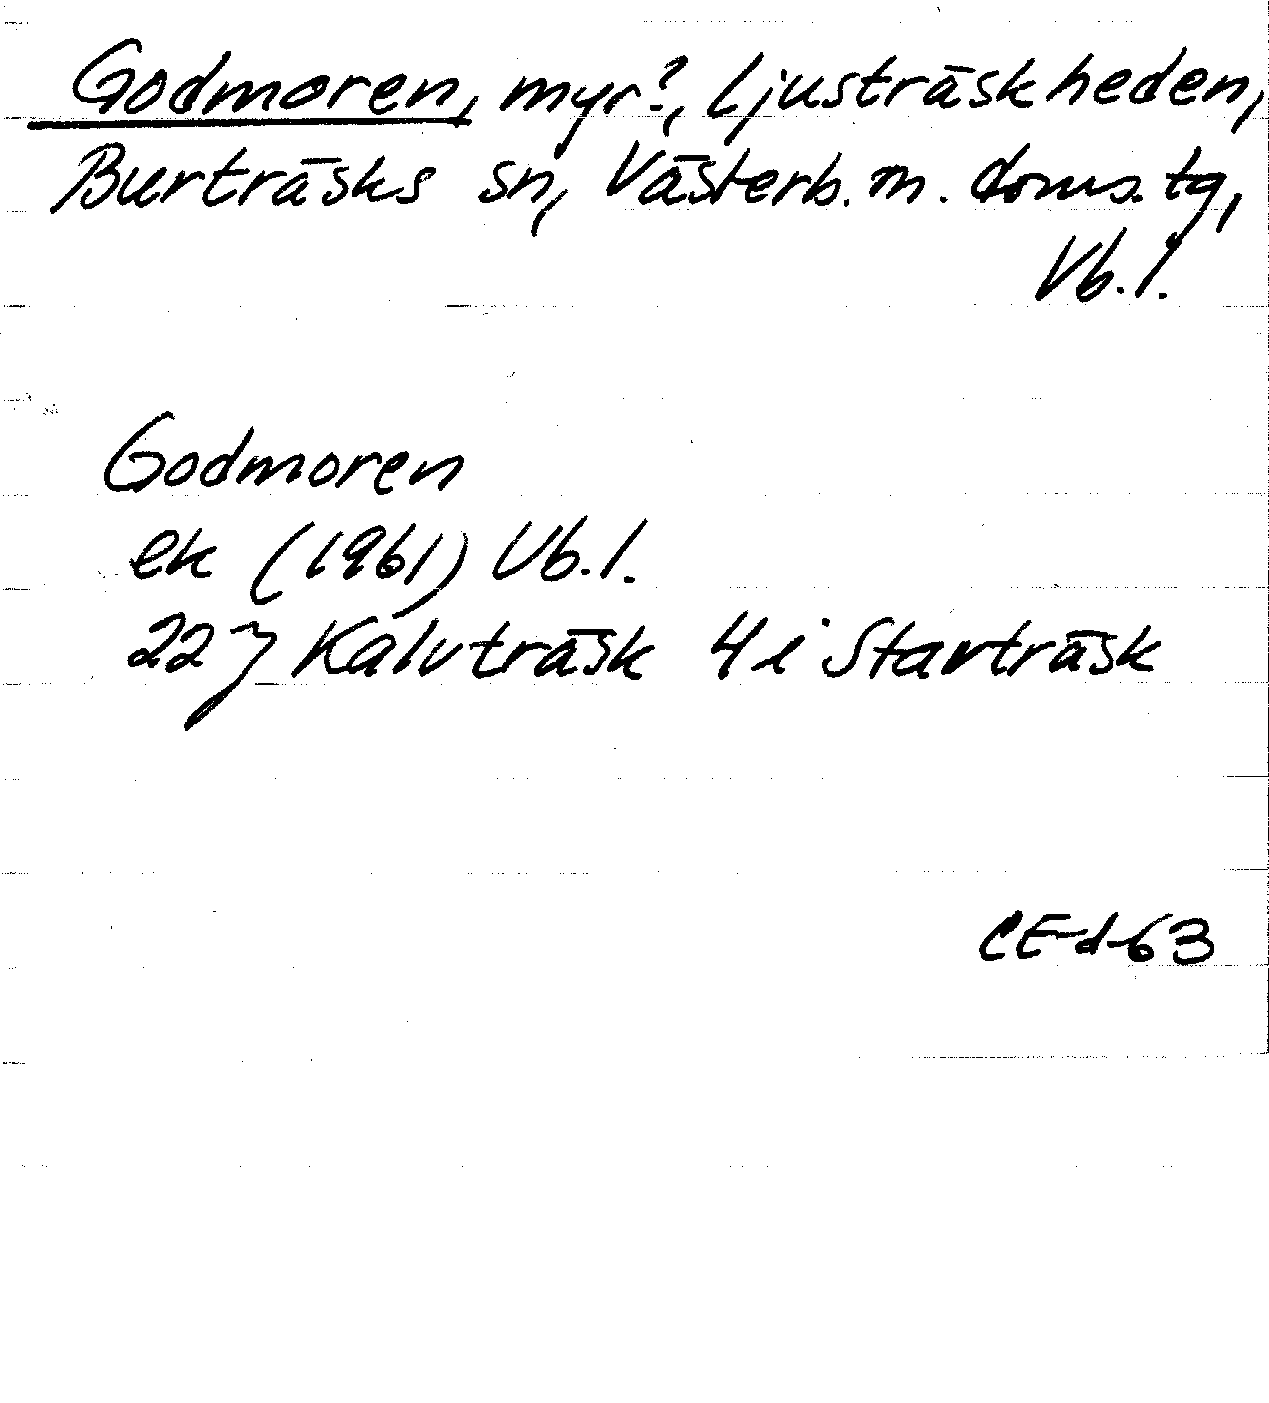 Godmoren, myr?, Ljusträskheden,
Burträsks sn, Västerb. m. doms. tg,
Vb. l.
Godmoren
ek (1961) Vb. l.
22 J Kalvträsk 4 i Starträsk
CE-d-63